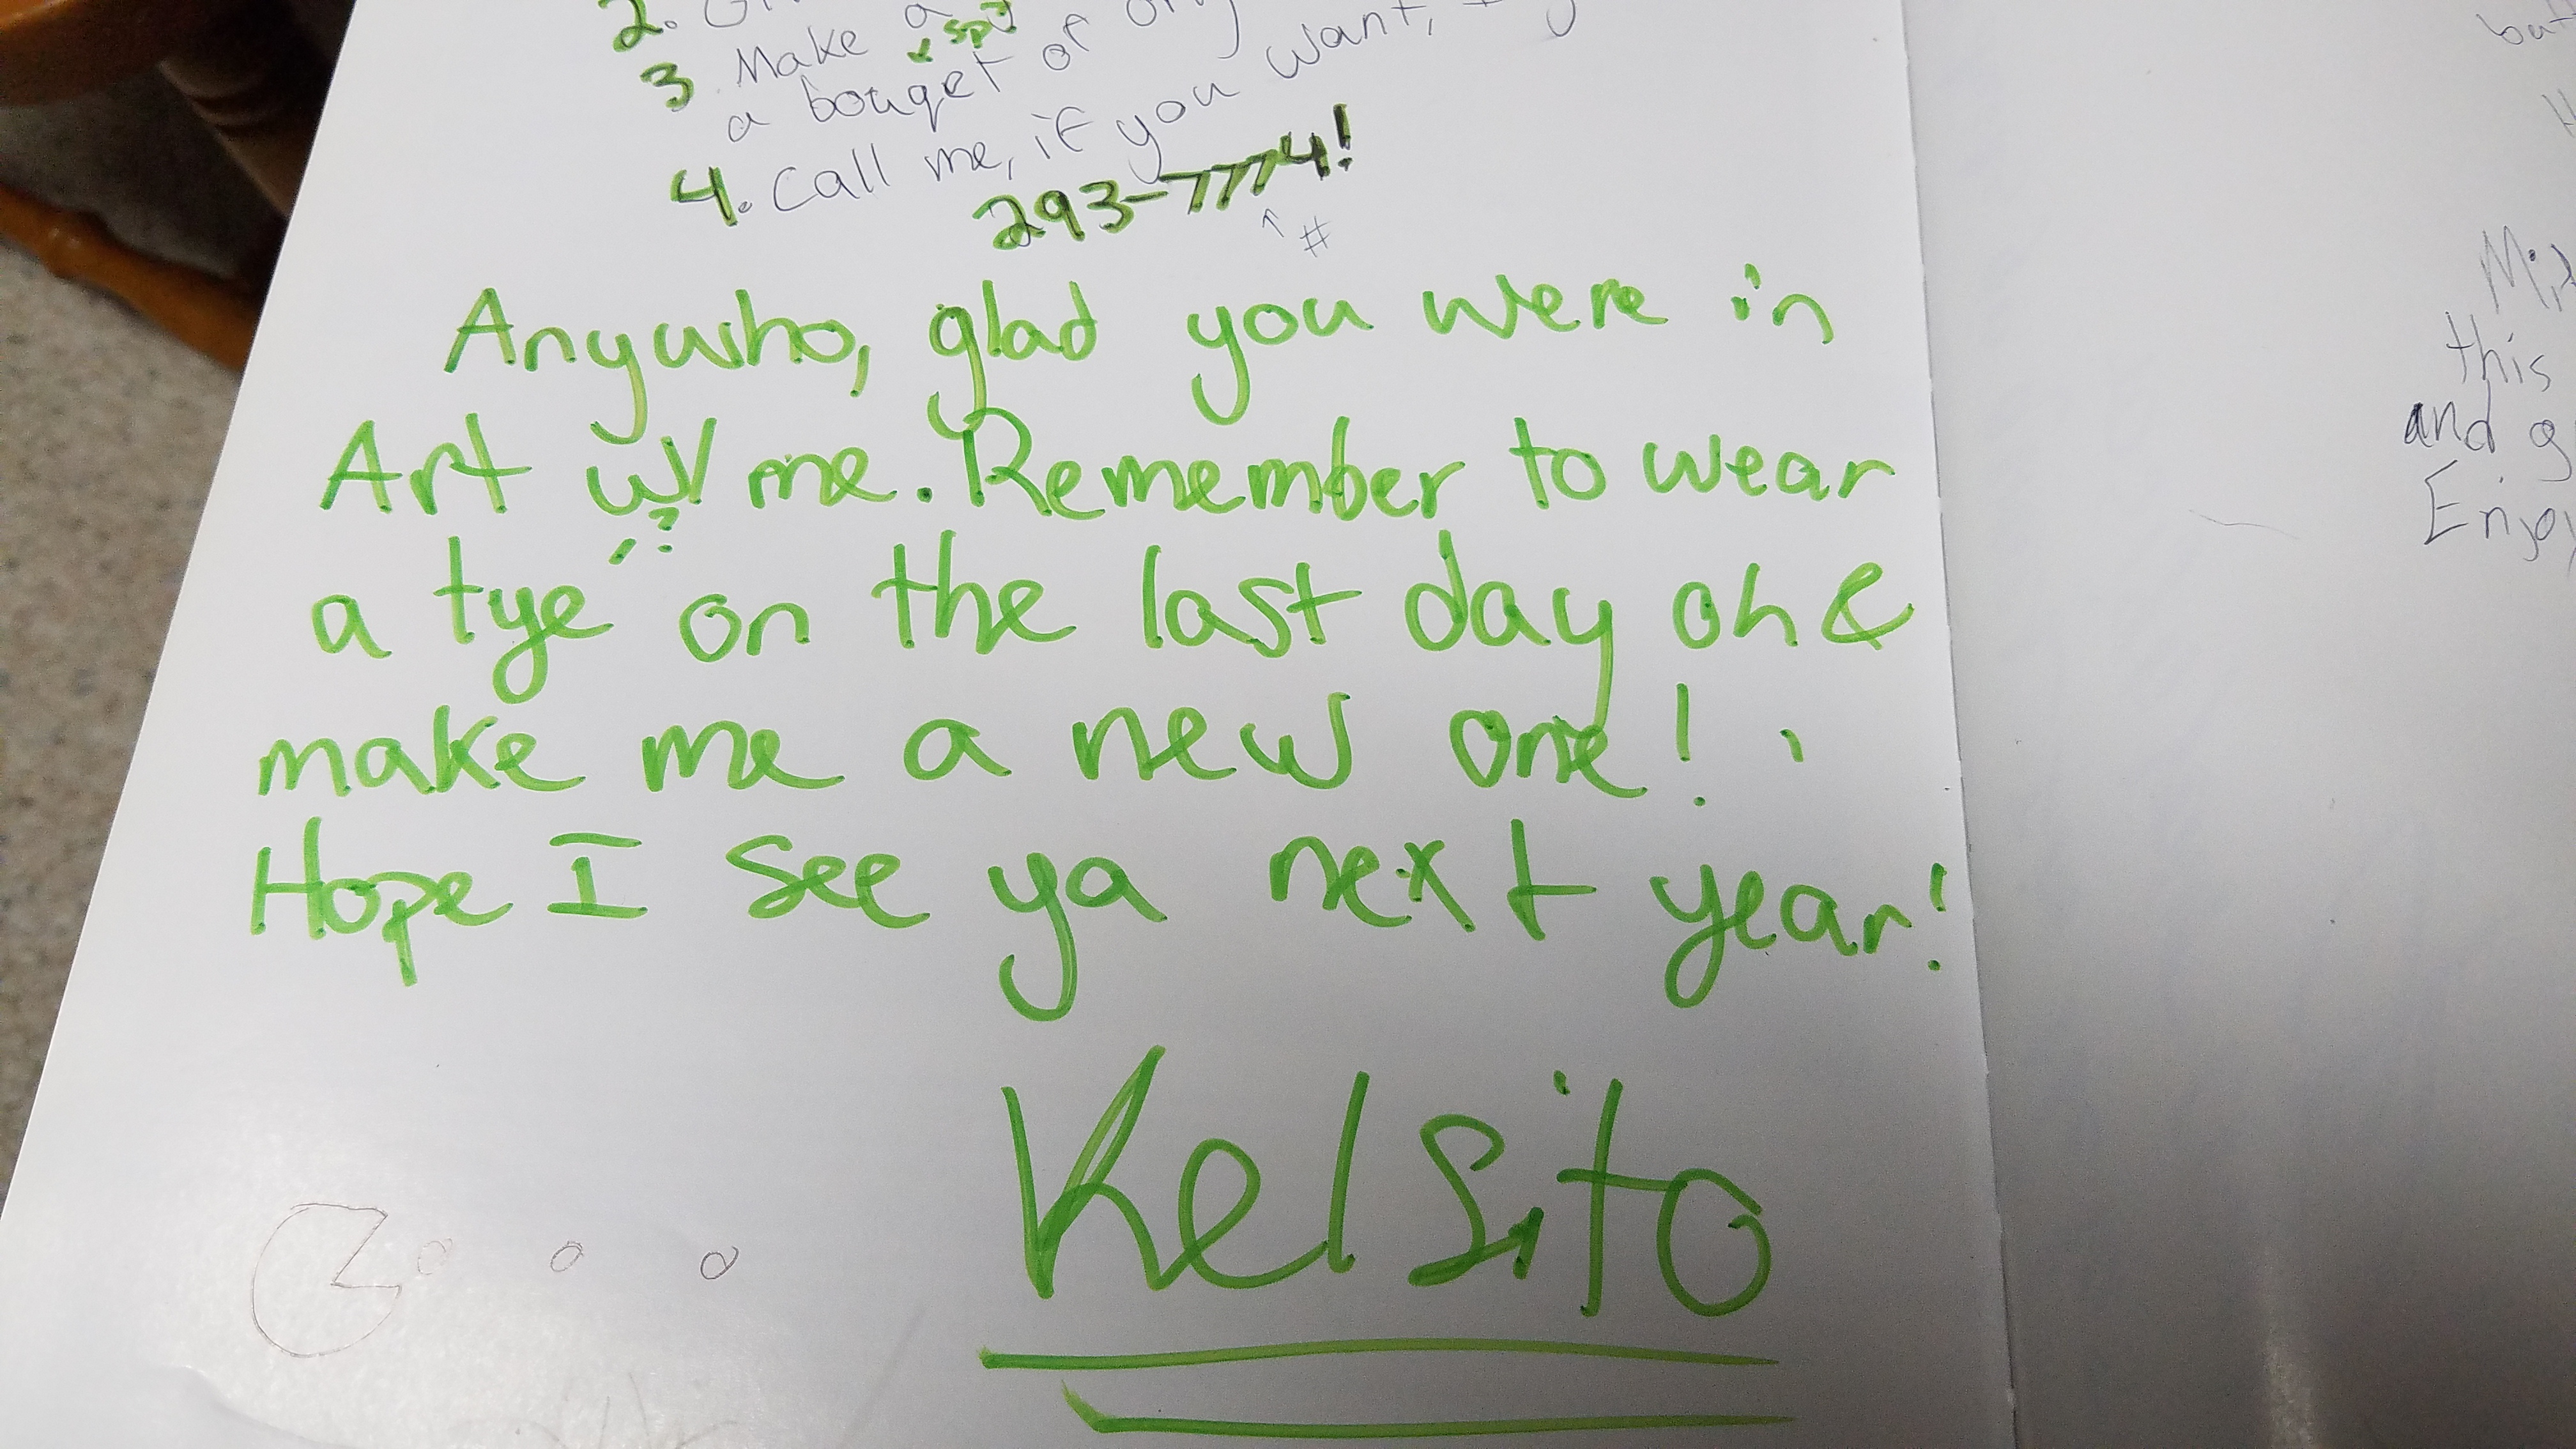 2.
3. Make a
↙ sp?
a bouqet of
4. Call me, if you want,
293-7774!
↑ #
Anywho, glad you were in
Art w/ me. Remember to wear
a tye on the last day oh &
?
make me a new one!
Hope I see ya next year!
Kelsito
this
and g
Enjoy